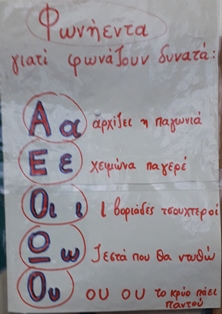 Φωνήεντα
γιατί φωνάζουν δυνατά:
Α α αρχίζει η παγωνιά
Ε ε χειμώνα παγερέ
Οι ι βοριάδες τσουχτεροί
Ο ω ζεστά που θα ντυθώ
Ου ου ου το κρύο πάει
παντού